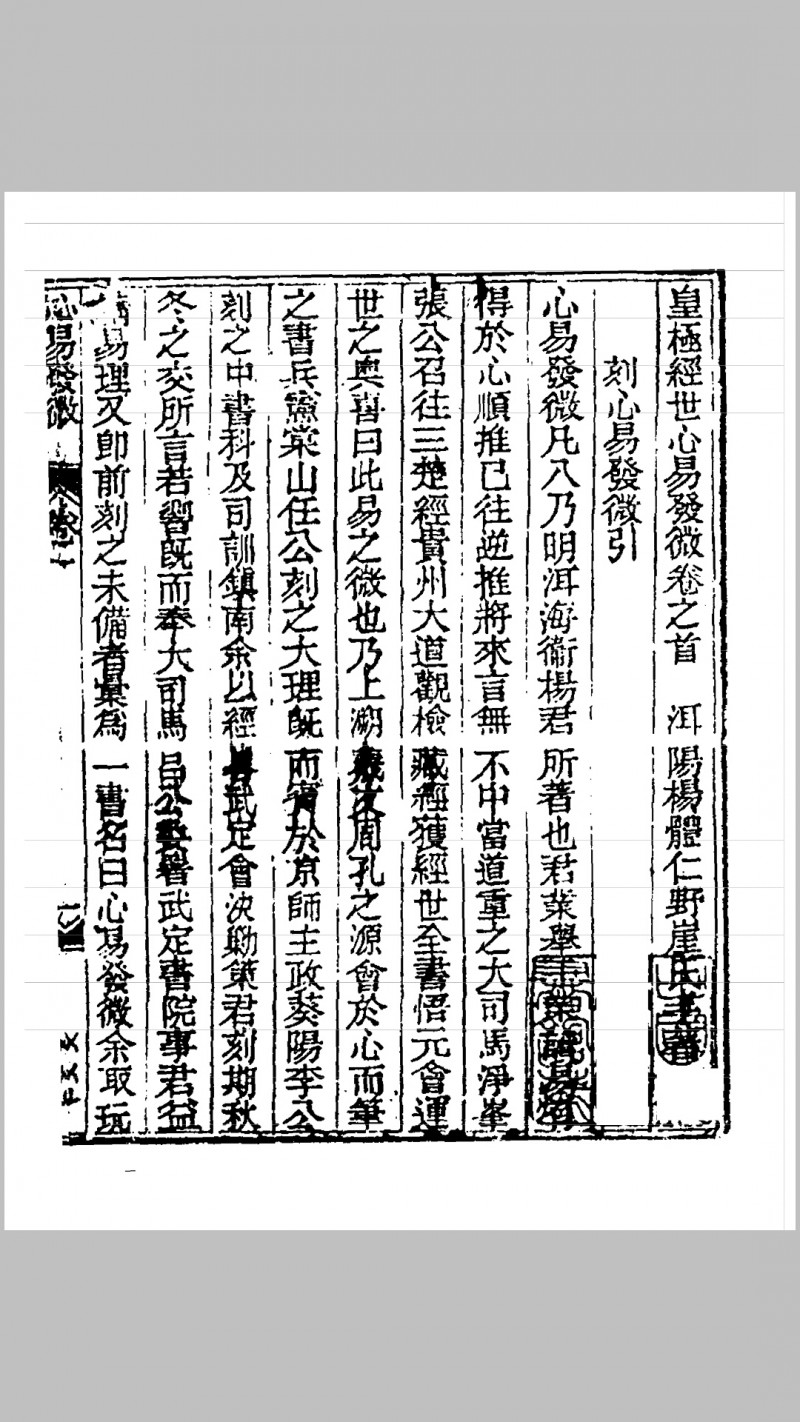 皇極經世心易發微卷之首　洱陽楊體仁野崖氏
刻心易發微引
心易發微凡八乃明洱海衞楊君所著也君業舉
得於心順推已往逆推將來言無不中當道重之大司馬淨峯
張公召往三楚經貴州大道觀檢藏經獲經世全書悟元會運
世之奧喜曰此易之微也乃上溯羲文周孔之源會於心而筆
之書兵憲棠山任公刻之大理旣而賓於京師主政葵陽李公
刻之中書科及司訓鎮南余以經武定會決勦策君刻期秋
冬之交所言若響旣而奉大司馬呂公署武定書院事君益
易理又卽前刻之未備者彙爲一書名曰心易發微余取玩
心易發微